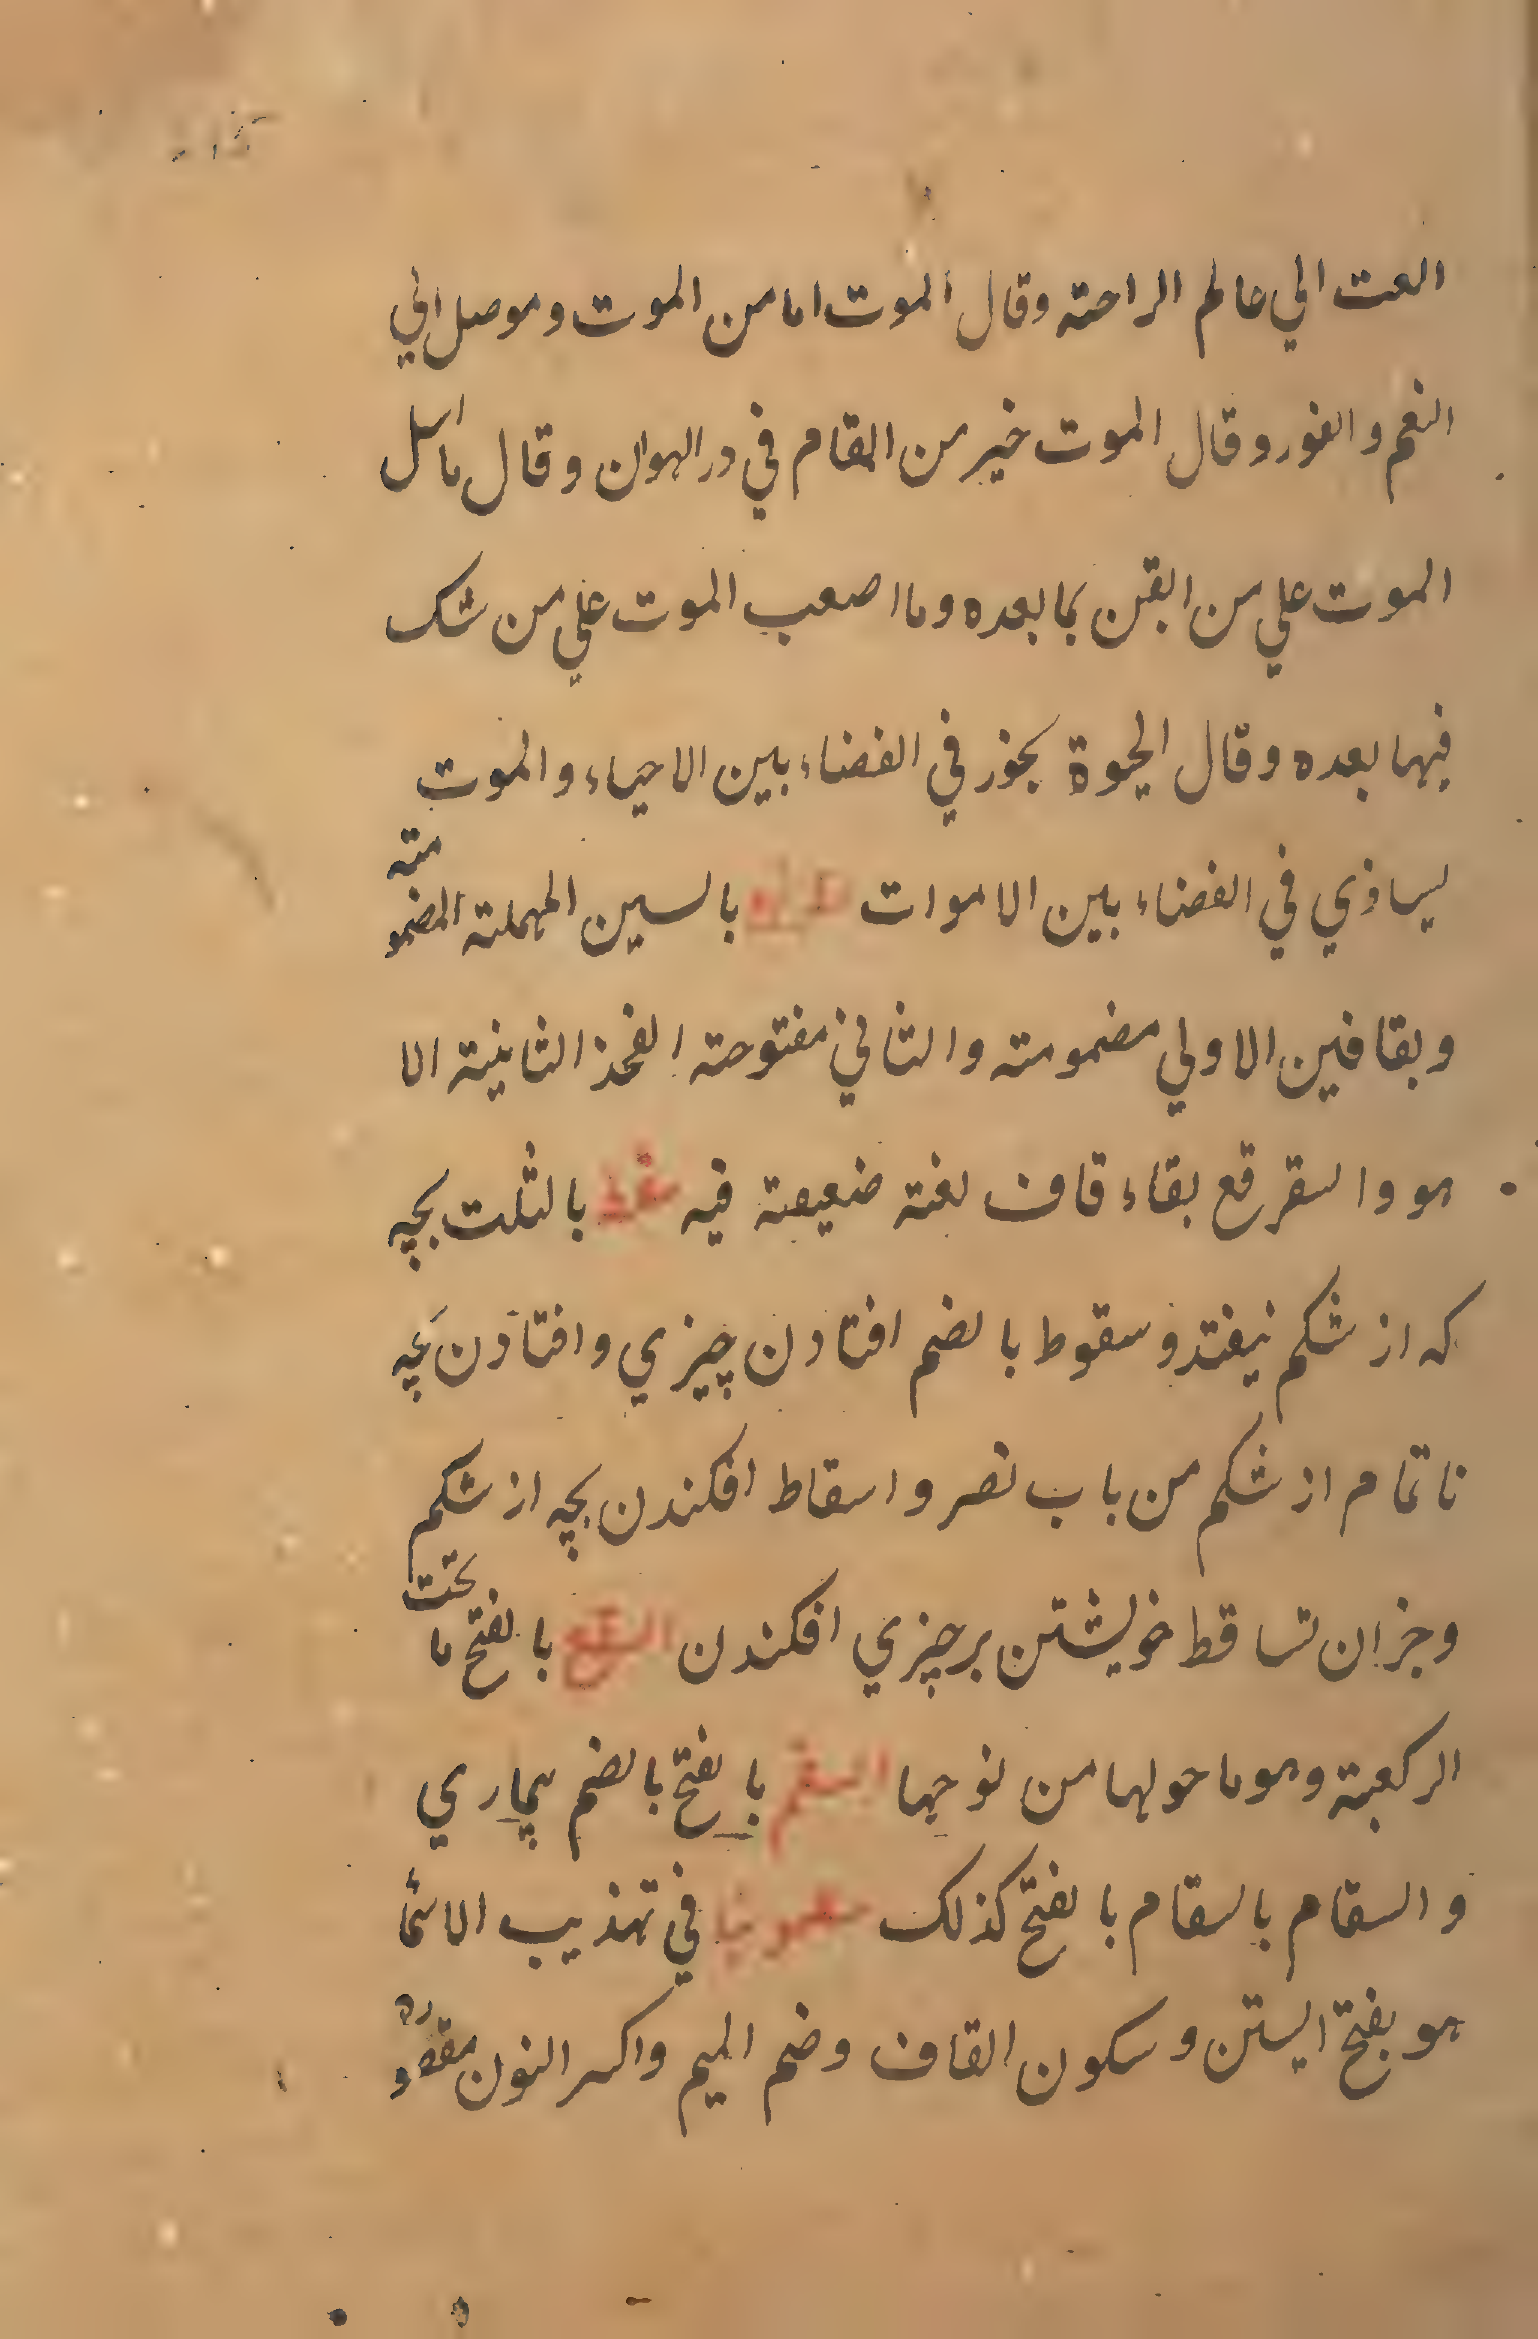 العت الي عالم الراحته وقال الموت اما من الموت وموصل الي
النعم و الفور وقال الموت خير من المقام في در الهوان وقال ما اسل
الموت علي من ايقن بما بعده وما اصعب الموت علي من شك
فيها بعده وقال الحيوة بجوز في الفضاء بين الاحياء والموت
يساوي في الفضاء بين الاموات بالسين المهملته المضمو مته
وبقافين الاولي مضمومته والثاني مفتوحته الفخذ الثانيته الا
هو والسقر قع بقاء قاف لغته ضعيفته فيه سقط بالثلث بچه
که از شکم نیفتد و سقوط بالضم افتادن چیزي وافتادن بچه
ناتمام از شکم من باب نصر و اسقاط افکندن بچه از شکم
وجزان تساقط خویشتن بر چیزي افکندن السقع بالفتح ما تحت
الركعبته وهو ما حولها من نوحها السقم بالفتح بالضم بیماري
والسقام بالسقام بالفتح كذلك سقمونيا في تهذيب الاسما
هو بفتح السين وسكون القاف وضم الميم واكسر النون مقصوره